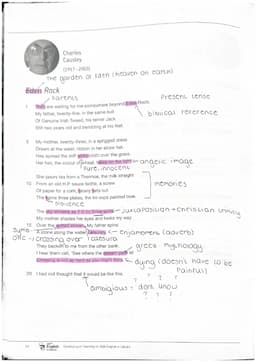 Charles
Causley
(1917-2003)
The garden of Eden (heaven on earth)
Eden Rock
Parents
Present tense
1 They are waiting for me somewhere beyond Eden Rock:
My father, twenty-five, in the same suit
biblical reference
Of Genuine Irish Tweed, his terrier Jack
Still two years old and trembling at his feet.
5 My mother, twenty-three, in a sprigged dress
Drawn at the waist, ribbon in her straw hat,
Has spread the stiff white cloth over the grass.
Her hair, the colour of wheat, takes on the light.
angelic image
Pure, innocent
She pours tea from a Thermos, the milk straight
10 From an old H.P. sauce bottle, a screw
memories
Of paper for a cork; slowly sets out
The same three plates, the tin cups painted blue.
The sky whitens as if lit by three suns.
juxtaposition → christian trinity
My mother shades her eyes and looks my way
15 Over the drifted stream. My father spins
A stone along the water. Leisurely,
enjambment (adverb)
crossing over
caesura
They beckon to me from the other bank.
greek mythology
I hear them call, 'See where the stream-path is!
Crossing is not as hard as you might think.'
dying (doesn't have to be painful)
20 I had not thought that it would be like this.
ambigious = dont know
? ? ?
? ?
English